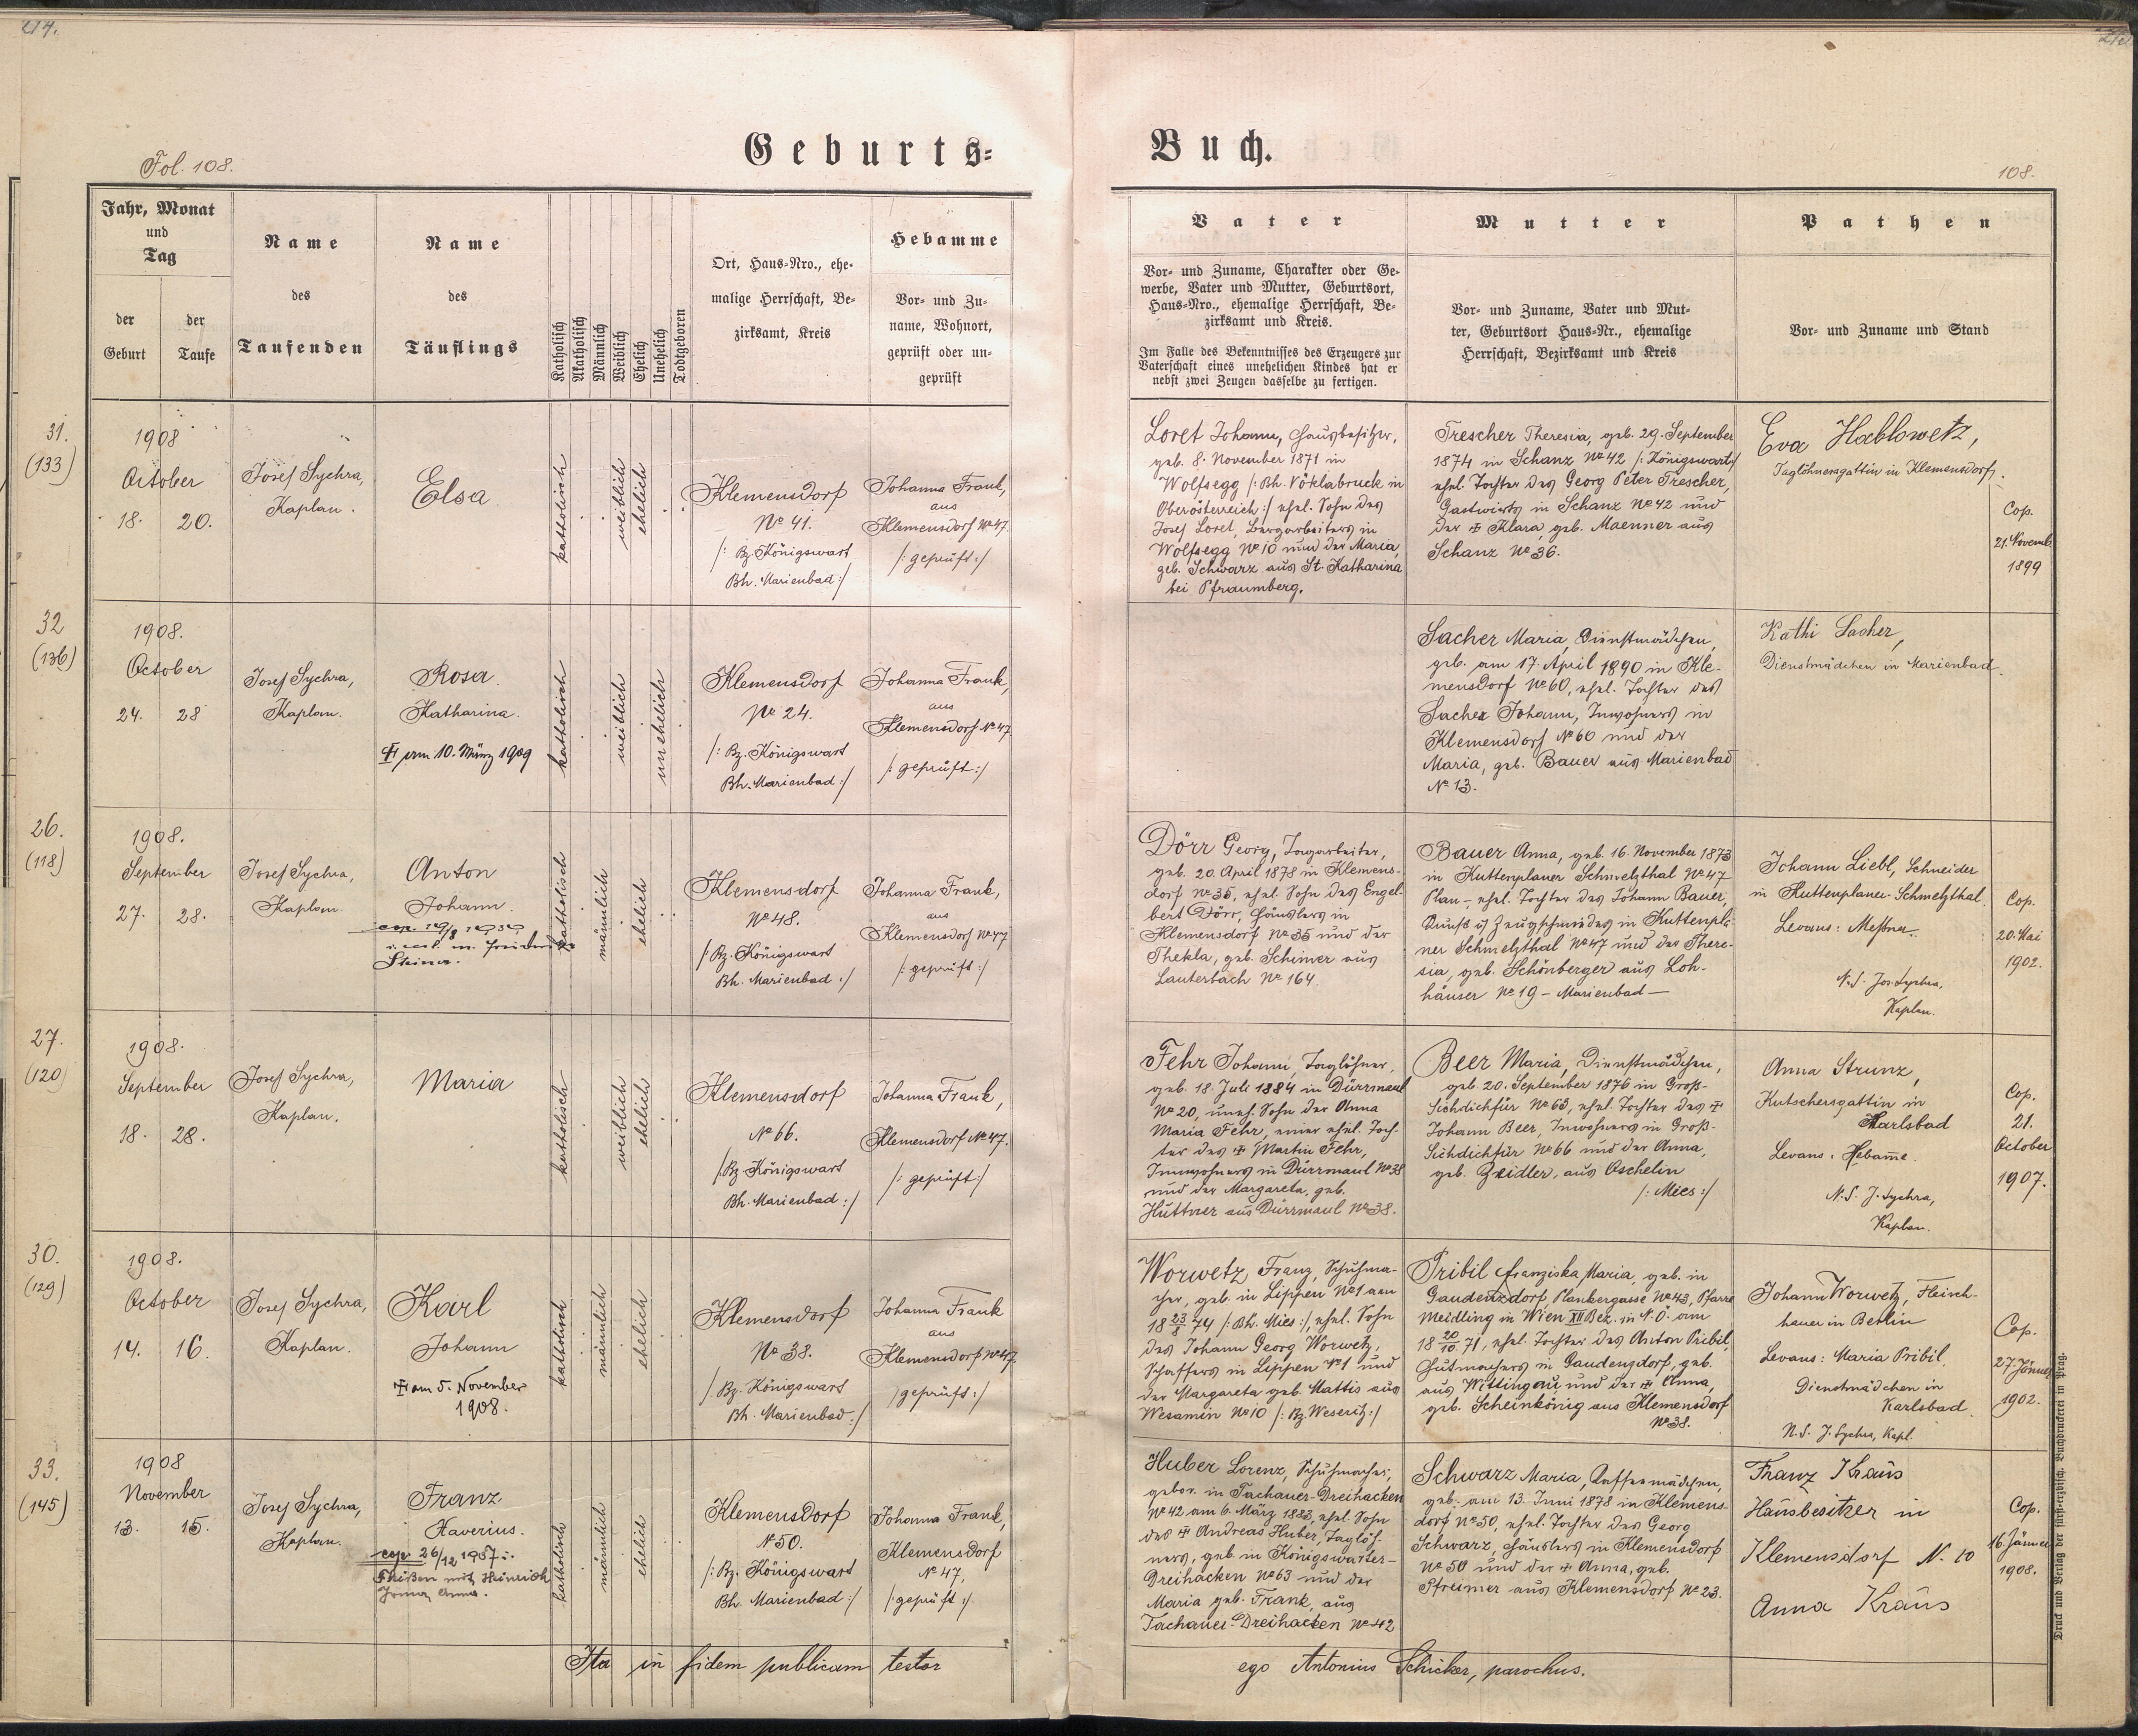 214.
Geburts=
Buch.
Fol. 108.
108.
Jahr, Monat
und
Tag
der
Geburt
der
Taufe
Name
des
Taufenden
Name
des
Täuflings
Katholisch
Akatholisch
Männlich
Weiblich
Ehelich
Unehelich
Todtgeboren
Ort, Haus=Nro., ehe=
malige Herrschaft, Be=
zirksamt, Kreis
Hebamme
Vor= und Zu=
name, Wohnort,
geprüft oder un=
geprüft
Vater
Vor= und Zuname, Charakter oder Ge=
werbe, Vater und Mutter, Geburtsort,
Haus=Nro., ehemalige Herrschaft, Be=
zirksamt und Kreis.
Im Falle des Bekenntnisses des Erzeugers zur
Vaterschaft eines unehelichen Kindes hat er
nebst zwei Zeugen dasselbe zu fertigen.
Mutter
Vor= und Zuname, Vater und Mut=
ter, Geburtsort Haus=Nr., ehemalige
Herrschaft, Bezirksamt und Kreis
Pathen
Vor= und Zuname und Stand
31.
(133)
1908
October
18. 20.
Josef Sychra,
Kaplan.
Elsa
katholisch
weiblich
ehelich
Klemensdorf
No 41.
/: Bz. Königswart
Bh. Marienbad :/
Johanna Frank,
aus
Klemensdorf No 47.
/: geprüft :/
Loret Johann, Hausbesitzer,
geb. 8. November 1871 in
Wolfsegg /: Bh. Vöklabruck in
Oberösterreich :/ ehel. Sohn des
Josef Loret, Bergarbeiters in
Wolfsegg No 10 und der Maria,
geb. Schwarz aus St. Katharina
bei Pfraumberg.
Trescher Theresia, geb. 29. September
1874 in Schanz No 42 /: Königswart :/
ehel. Tochter des Georg Peter Trescher,
Gastwirts in Schanz No 42 und
der ✝ Klara, geb. Maenner aus
Schanz No 36.
Eva Hablowetz,
Taglöhnersgattin in Klemensdorf.
Cop.
21. Novemb.
1899
32
(136)
1908.
October
24. 28
Josef Sychra,
Kaplan.
Rosa
Katharina.
✝ am 10. März 1909
katholisch
weiblich
unehelich
Klemensdorf
No 24.
/: Bz. Königswart
Bh. Marienbad :/
Johanna Frank,
aus
Klemensdorf No 47
/: geprüft :/
Sacher Maria, Dienstmädchen,
geb. am 17. April 1890 in Kle-
mensdorf No 60, ehel. Tochter des
Sacher Johann, Inwohners in
Klemensdorf No 60 und der
Maria, geb. Bauer aus Marienbad
No 13.
Kathi Sacher,
Dienstmädchen in Marienbad.
26.
(118)
1908.
September
27. 28.
Josef Sychra,
Kaplan.
Anton
Johann.
cop. 19/8 1939
katholisch
männlich
ehelich
Klemensdorf
No 48.
/: Bz. Königswart
Bh. Marienbad :/
Johanna Frank,
aus
Klemensdorf No 47
/: geprüft :/
Dörr Georg, Tagarbeiter,
geb. 20. April 1878 in Klemens-
dorf No 35, ehel. Sohn des Engel-
bert Dörr, Häuslers in
Klemensdorf No 35 und der
Thekla, geb. Schimer aus
Lauterbach No 164.
Bauer Anna, geb. 16. November 1873
in Kuttenplaner Schmelzthal No 47
Plan -, ehel. Tochter des Johann Bauer,
Zeugschmiedes in Kuttenpla-
ner Schmelzthal No 47 und der There-
sia, geb. Schönberger aus Loh-
häuser No 19 - Marienbad -
Johann Liebl, Schneider
in Kuttenplaner-Schmelzthal.
Levans: Meßner.
N.S. Jos. Sychra,
Kaplan.
Cop.
20. Mai
1902.
27.
(120)
1908.
September
18. 28.
Josef Sychra,
Kaplan.
Maria
katholisch
weiblich
ehelich
Klemensdorf
No 66.
/: Bz. Königswart
Bh. Marienbad :/
Johanna Frank,
Klemensdorf No 47.
/: geprüft :/
Fehr Johann, Taglöhner,
geb. 18. Juli 1884 in Dürrmaul
No 20, uneh. Sohn der Anna
Maria Fehr, einer ehel. Toch-
ter des ✝ Martin Fehr,
Innwohners in Dürrmaul No 38
und der Margareta, geb.
Hüttner aus Dürrmaul No 38.
Beer Maria, Dienstmädchen,
geb. 20. September 1876 in Groß-
Sichdichfür No 63, ehel. Tochter des ✝
Johann Beer, Inwohners in Groß-
Sichdichfür No 66 und der Anna,
geb. Zeidler, aus Oschelin
/: Mies :/
Anna Strunz,
Kutschersgattin in
Karlsbad
Levans: Hebame.
N.S. J. Sychra,
Kaplan.
Cop.
21.
October
1907.
30.
(129)
1908.
October
14. 16.
Josef Sychra,
Kaplan.
Karl
Johann
✝ am 5. November
1908.
katholisch
männlich
ehelich
Klemensdorf
No 38.
/: Bz. Königswart
Bh. Marienbad :/
Johanna Frank
aus
Klemensdorf No 47.
/ geprüft :/
Worwetz Franz, Schuhma-
cher, geb. in Lippen No 1 am
18 23/8 74 /: Bh. Mies :/, ehel. Sohn
des Johann Georg Worwetz,
Schaffers in Lippen No 1 und
der Margareta geb. Mattis aus
Wesamin No 10 /: Bz. Weseritz :/
Pribil Franziska Maria, geb. in
Gaudenzdorf, Plankergasse No 43, Pfarre
Meidling in Wien XII Bez. in N.Ö. am
18 20/10 71, ehel. Tochter des Anton Pribil,
Hutmachers in Gaudenzdorf, geb.
aus Wittingau und der ✝ Anna,
geb. Scheinkönig aus Klemensdorf
No 38.
Johann Worwetz, Fleisch-
hauer in Berlin
Levans: Maria Pribil,
Dienstmädchen in
Karlsbad.
N.S. J. Sychra, Kapl.
Cop.
27. Jänner
1902.
33.
(145)
1908
November
13. 15.
Josef Sychra,
Kaplan.
Franz
Xaverius.
cop. 26/12 1937 i.
mit Heinrich
Anna.
katholisch
männlich
ehelich
Klemensdorf
No 50.
/: Bz. Königswart
Bh. Marienbad :/
Johanna Frank,
Klemensdorf
No 47,
/: geprüft :/
Huber Lorenz, Schuhmacher,
gebor. in Tachauer-Dreihacken
No 42 am 6. März 1883, ehel. Sohn
des ✝ Andreas Huber, Taglöh-
ners, geb. in Königswarter-
Dreihacken No 63 und der
Maria geb. Frank, aus
Tachauer-Dreihacken No 42
Schwarz Maria, Kaffeemädchen,
geb. am 13. Juni 1878 in Klemens-
dorf No 50, ehel. Tochter des Georg
Schwarz, Häuslers in Klemensdorf
No 50 und der ✝ Anna, geb.
Pfreimer aus Klemensdorf No 23.
Franz Kraus
Hausbesitzer in
Klemensdorf N. 10
Anna Kraus
Cop.
16. Jänner
1908.
Ita in fidem publicam testor
ego Antonius Schicker, parochus.
Druck und Verlag der fürst=erzbisch. Buchdruckerei in Prag.